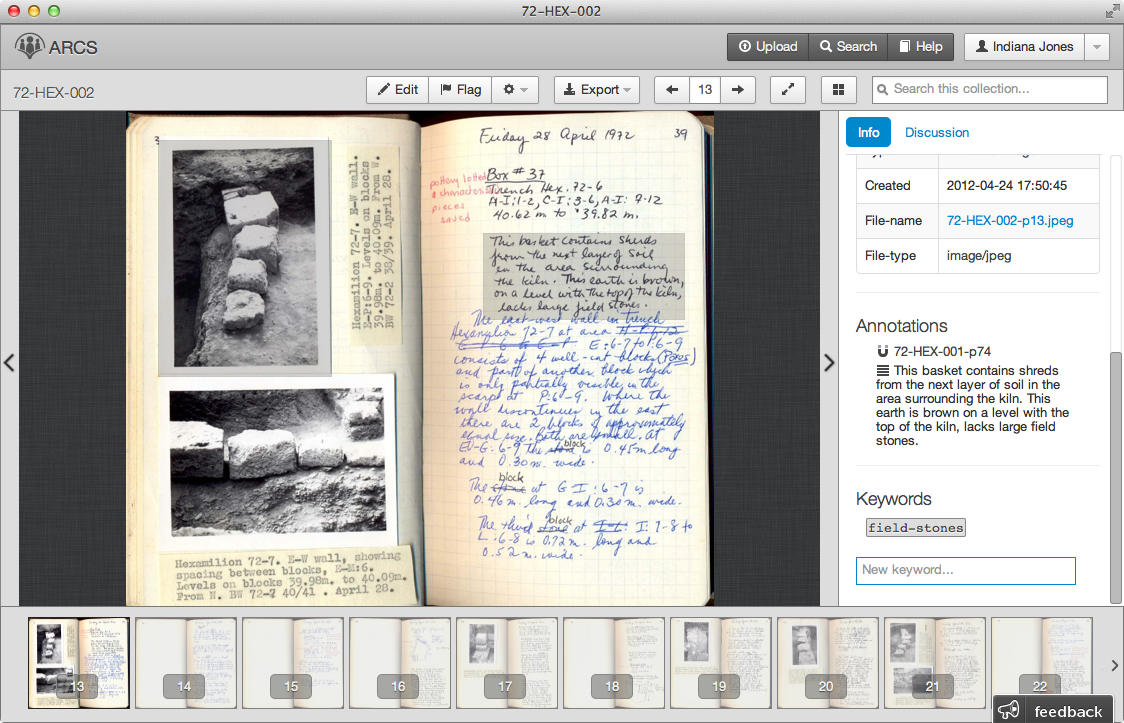 72-HEX-002
ARCS
Upload
Search
Help
Indiana Jones
72-HEX-002
Edit
Flag
Export
13
Search this collection...
Hexamilion 72-7. E-W wall.
E-P:6-9. Levels on blocks
39.98m. to 40.09m. From W.
BW 72-2 38/39. April 28.
Hexamilion 72-7. E-W wall, showing
spacing between blocks, E-M:6.
Levels on blocks 39.98m. to 40.09m.
From N. BW 72-2 40/41 . April 28.
Friday 28 April 1972
39
pottery lotted
& characteristic
pieces
saved
Box # 37
Trench Hex. 72-6
A-I:1-2, C-I:3-6, A-I: 9-12
40.62 m to 39.82 m.
This basket contains sherds
from the next layer of soil
in the area surrounding
the kiln. This earth is brown,
on a level with the top of the kiln,
lacks large field stones.
The east-west wall in trench
Hexamilion 72-7 at area
E:6-7 to P:6-9
consists of 4 well-cut blocks (Poros)
and part of another block which
is only partially visible in the
scarp at P:6-9. Where the
wall discontinues in the east
there are 2 blocks of approximately
equal size. Both are small. At
E-G:6-9 the block is 0.45m long
and 0.30m. wide.
The block at G-I:6-7 is
0.46m. long and 0.30m. wide.
The third block at I:7-8 to
L:6-8 is 0.72m. long and
0.52m. wide.
Info
Discussion
Created
2012-04-24 17:50:45
File-name
72-HEX-002-p13.jpeg
File-type
image/jpeg
Annotations
72-HEX-001-p74
This basket contains shreds
from the next layer of soil in the
area surrounding the kiln. This
earth is brown on a level with the
top of the kiln, lacks large field
stones.
Keywords
field-stones
New keyword...
13
14
15
16
17
18
19
20
21
22
feedback